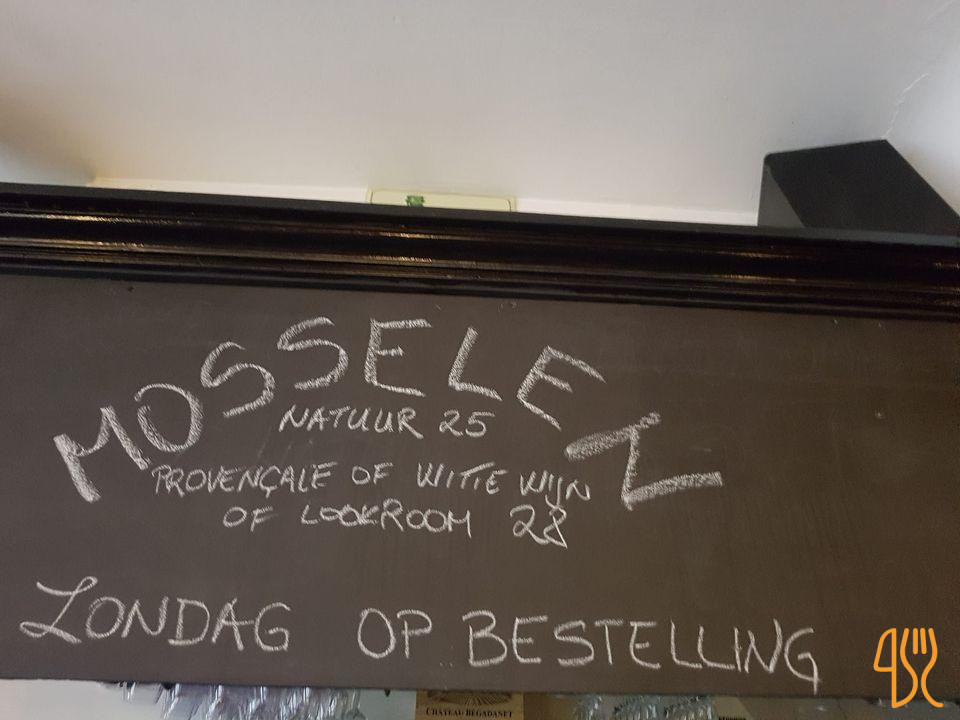 MOSSELEN
NATUUR 25
PROVENÇALE OF WITTE WIJN
OF LOOKROOM 28
ZONDAG OP BESTELLING
CHÂTEAU BÉGADANET